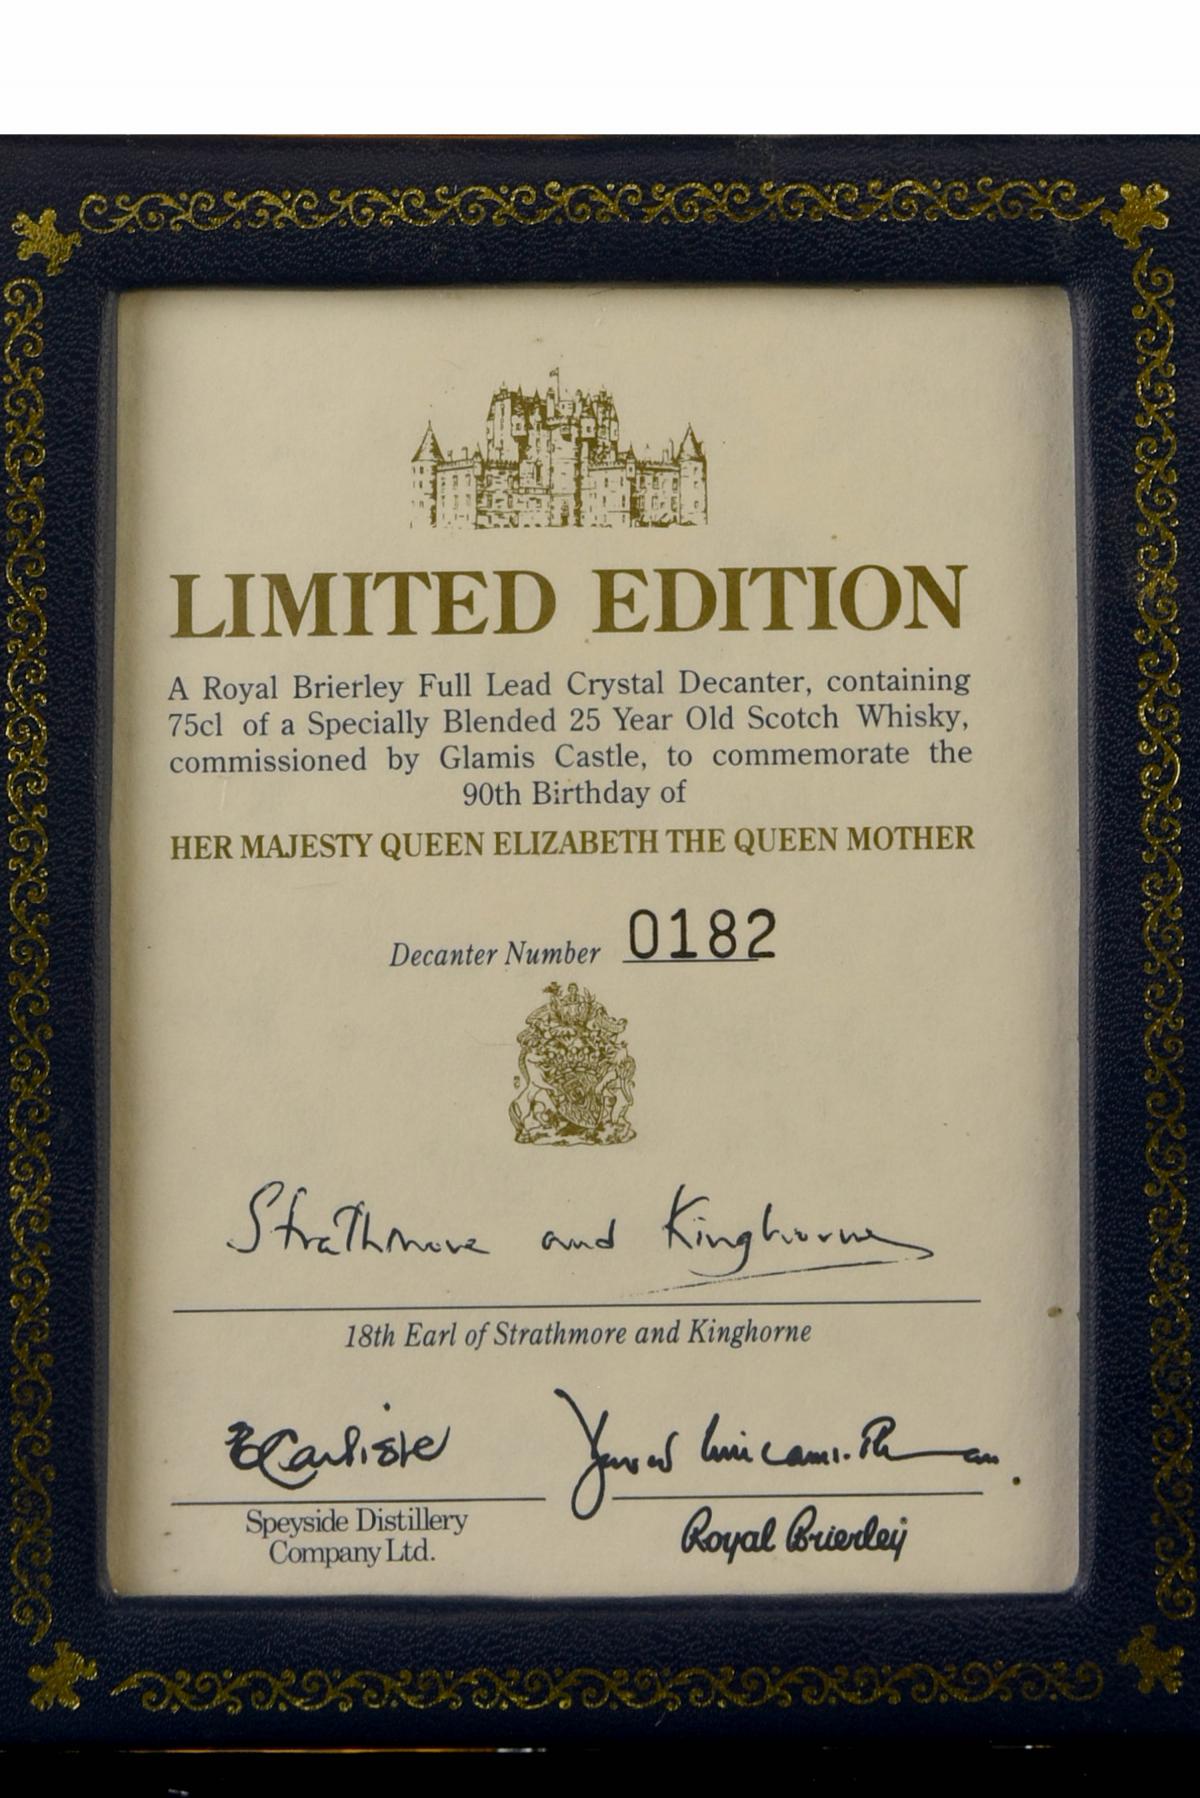 LIMITED EDITION
A Royal Brierley Full Lead Crystal Decanter, containing
75cl of a Specially Blended 25 Year Old Scotch Whisky,
commissioned by Glamis Castle, to commemorate the
90th Birthday of
HER MAJESTY QUEEN ELIZABETH THE QUEEN MOTHER
Decanter Number 0182
Strathmore and Kinghorne
18th Earl of Strathmore and Kinghorne
Carlisle
Speyside Distillery
Company Ltd.
Royal Brierley